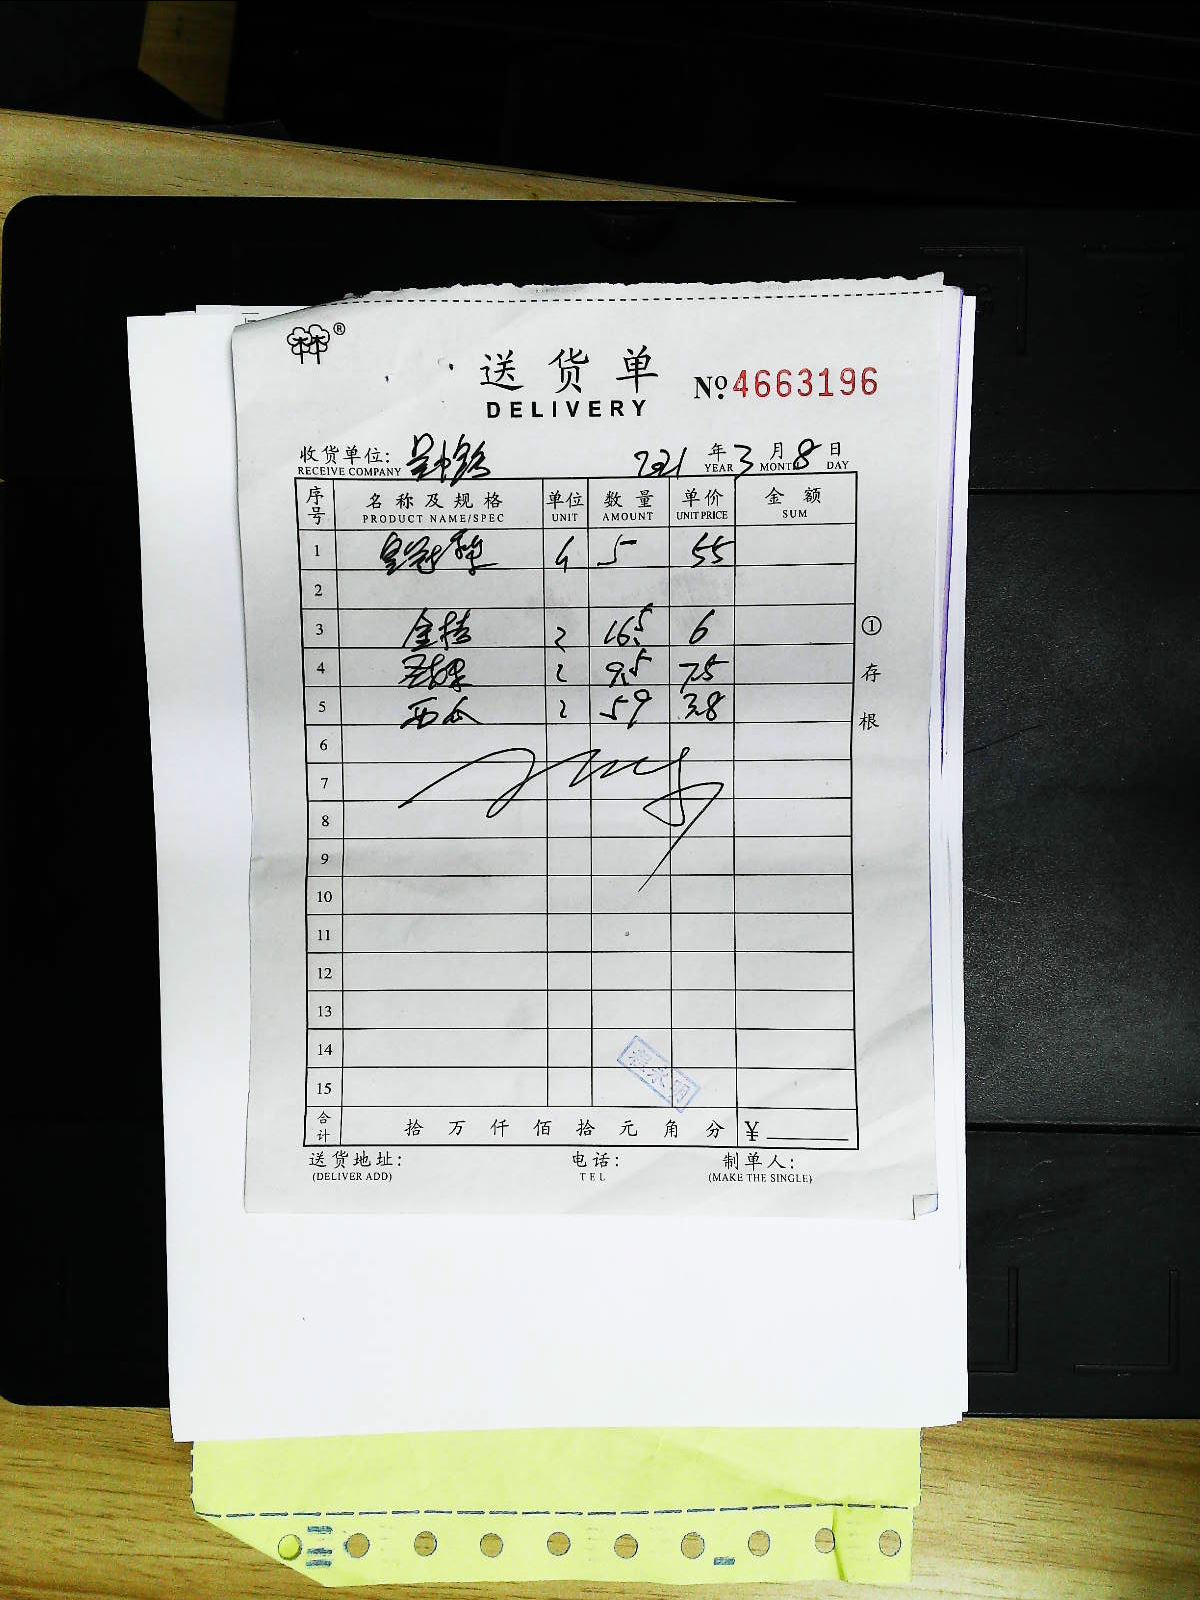 林®
送货单
DELIVERY
№ 4663196
收货单位:
RECEIVE COMPANY
2021 年 3 月 8 日
YEAR MONTH DAY
序号 名称及规格 单位 数量 单价 金额
PRODUCT NAME/SPEC UNIT AMOUNT UNIT PRICE SUM
1 皇冠梨 5 55
2
3 金桔 16.5 6
4 9.5 7.5
5 西瓜 59 3.8
6
7
8
9
10
11
12
13
14
15
合计 拾 万 仟 佰 拾 元 角 分 ¥
①存根
送货地址: 电话: 制单人:
(DELIVER ADD) TEL (MAKE THE SINGLE)